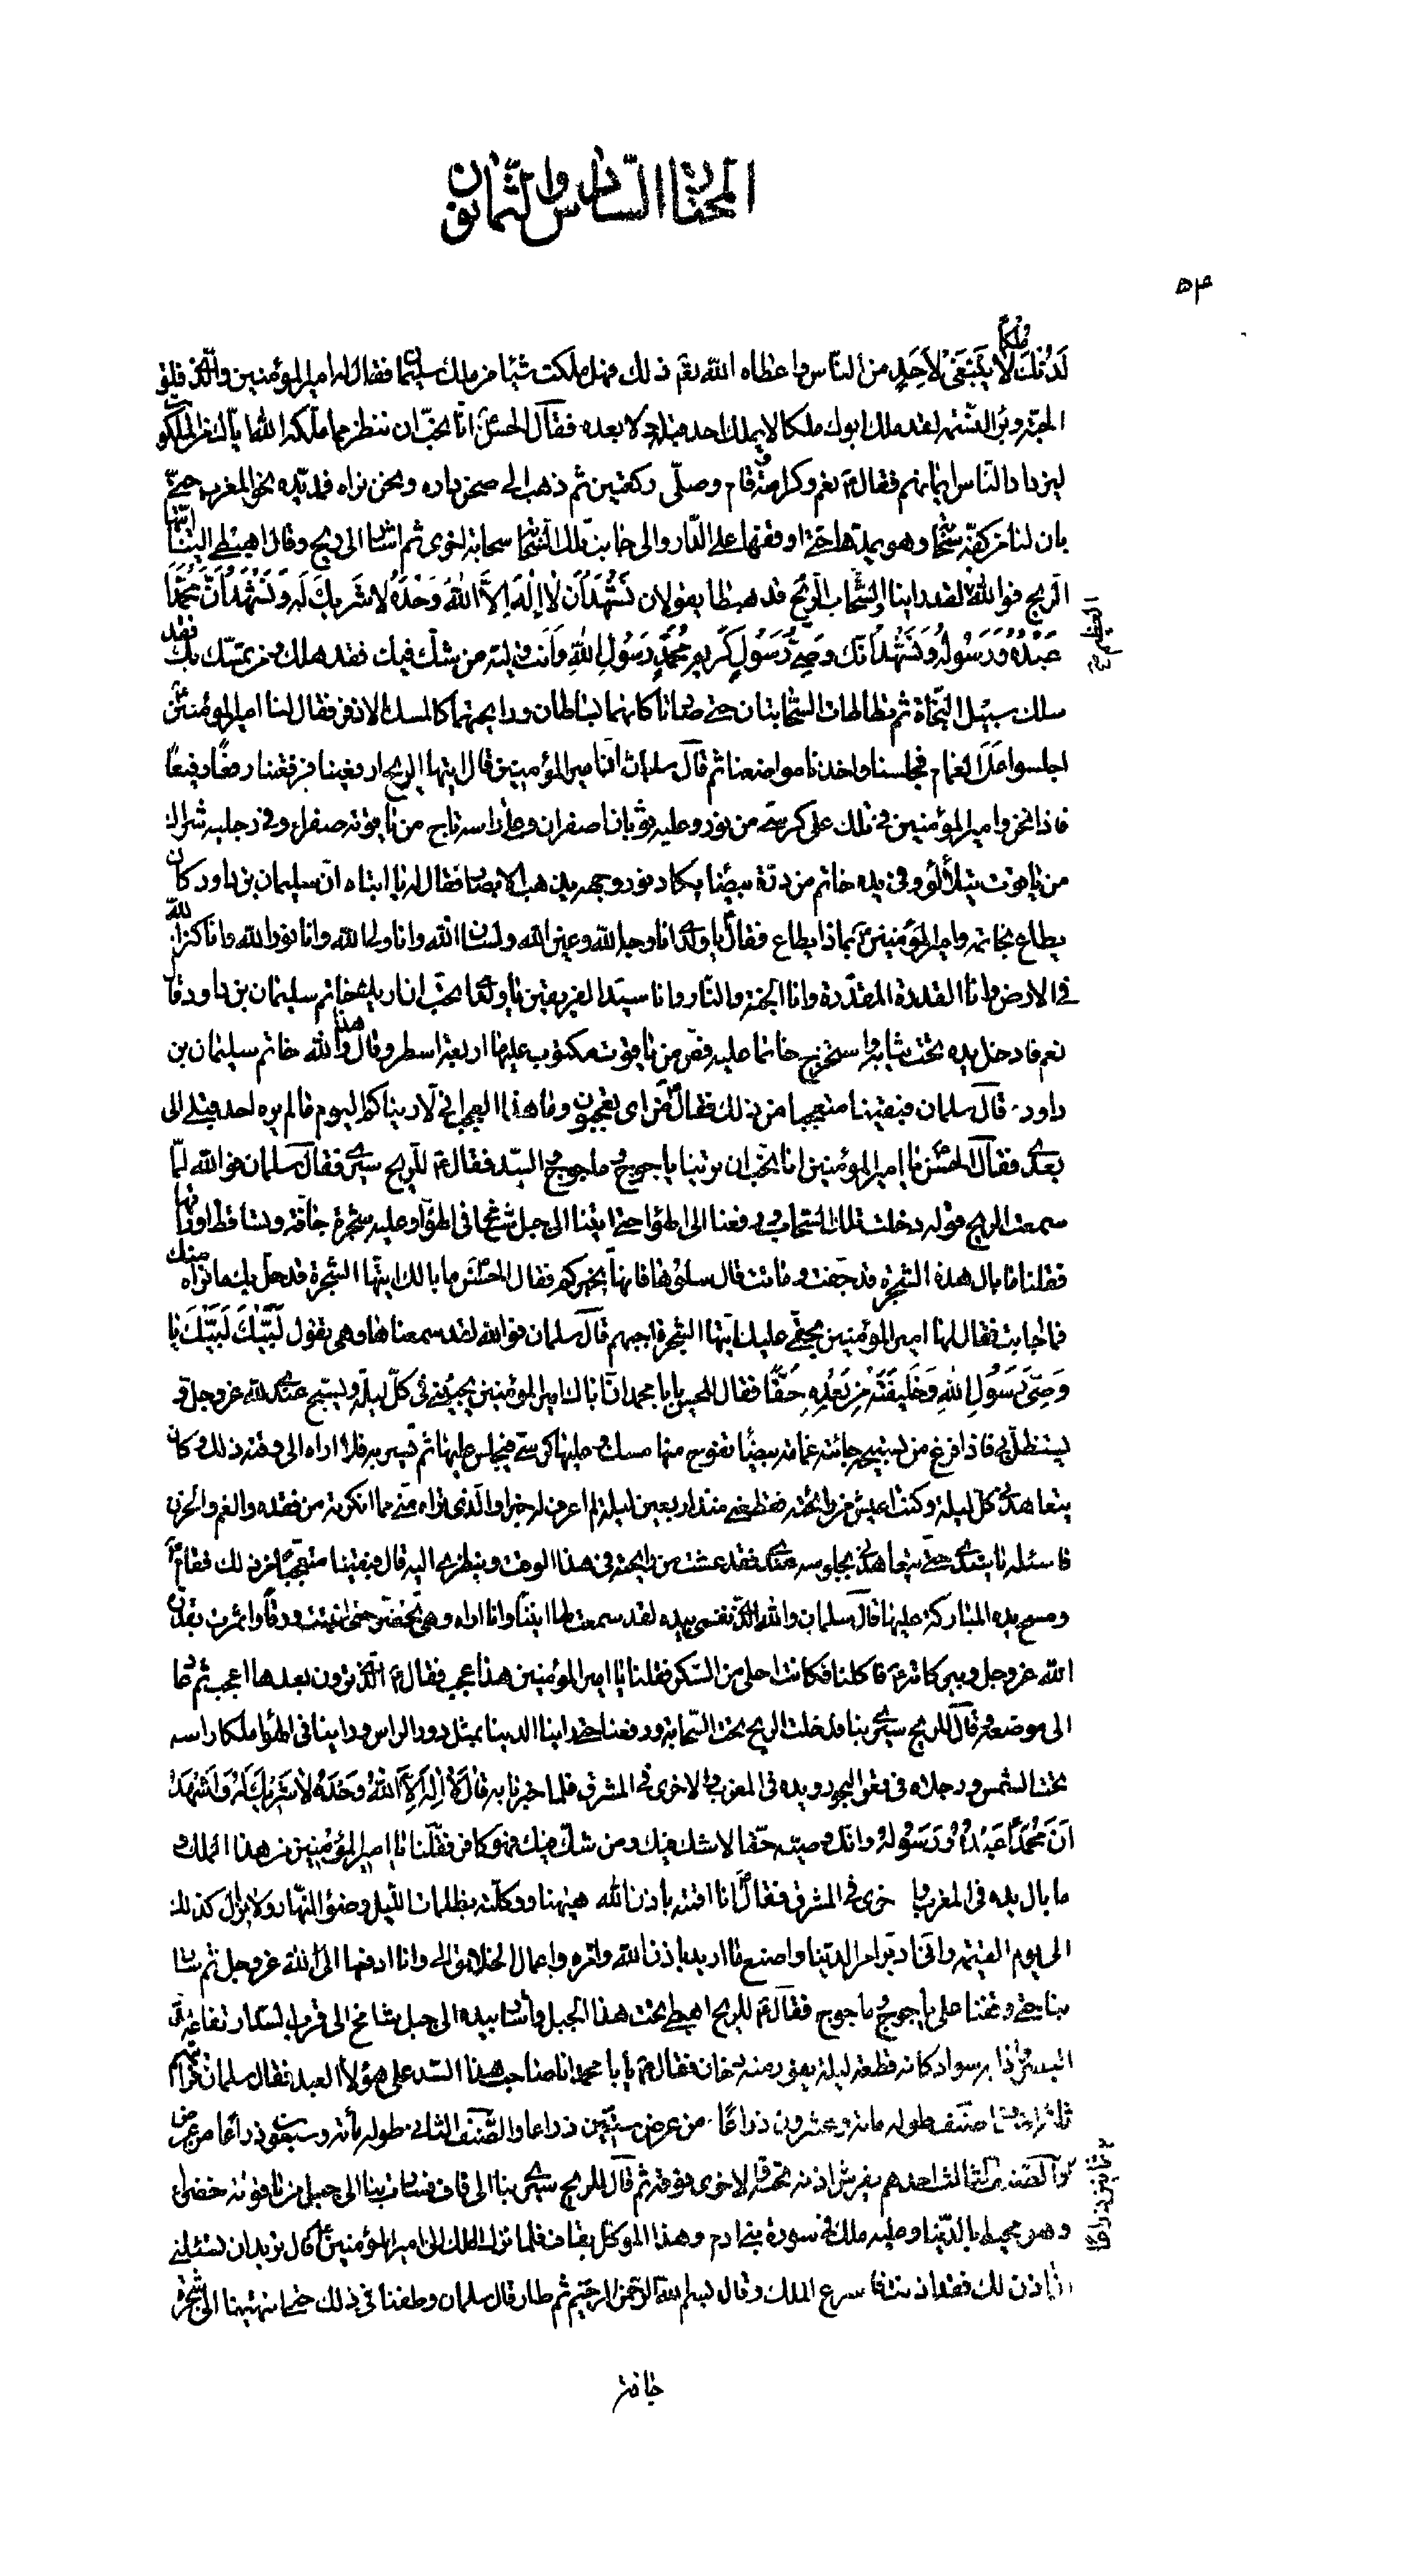 المحتار السادس والثمانون
٥٣
ملكا
لَدُنْكَ لا يَنْبَغي لأَحَدٍ من الناس واعطاه الله نعم ذلك فهل ملكت شيئا من ملك سليمان فقال له امير المؤمنين والّذى فلق
الحبّة وبرئ النسمة لقد ملك ابوك ملكا لا يملك احد قبله ولا بعده فقال الحسن انّا نحبّ ان ننظر مما ملّكه الله اياك من الملكوت
ليزداد الناس ايمانهم فقال ع نعم وكرامة وقام وصلّى ركعتين ثم ذهب الى صحن داره ونحن نراه فمدّ يده نحو المغرب حتّى
بان لنا من كفّه سحابة وهو يمدّها حتى اوقفها على الدار والى جانب تلك السحابة سحابة اخرى ثم اشار الى ريح وقال اهبطى الينا ايّتها
الريح فوالله لقد راينا السحاب والريح قد هبطا يقولان نَشْهَدُ اَن لا اِلٰهَ اِلاَّ اللهُ وَحْدَهُ لا شَريكَ لَه وَنَشْهَدُ اَنَّ مُحَمَّدًا
عَبْدُهُ وَرَسُولُهُ وَنَشْهَدُ اَنّك وَصِيُّ رَسُولٍ كَريم مُحَمَّدٍ رَسُولِ اللهِ وَاَنت وليّه من شكّ فيك فقد هلك ومن تمسّك بك فقد
سلك سبيل النجاة ثم تطاطات السحابتان حتى صارتا كانهما بساطان ورايحتهما كالمسك الاذفر فقال لنا امير المؤمنين
اجلسوا على الغمام فجلسنا واخذنا مواضعنا ثم قال سلمان انّ امير المؤمنين قال ايتها الريح ارفعينا فرفعتنا رفعًا رفيعًا
فاذا نحن وامير المؤمنين في تلك على كرسى من نور وعليه ثوبان اصفران وعلى راسه تاج من ياقوتة صفراء وفي رجليه شراك
من ياقوت يتلألؤ وفى يده خاتم من درّة بيضا يكاد نور وجهه يذهب الابصار فقال له يا ابتاه انّ سليمان بن داود كان
يطاع بخاتمه وامير المؤمنين بماذا يطاع فقال يا ولدى انا وجه الله وعين الله ولسان الله وانا ولى الله وانا نور الله وانا كنز الله
في الارض وانا القدرة المقدّرة وانا الجنة والنار وانا سيّد الفريقين يا ولدى اتحبّ ان اريك خاتم سليمان بن داود قال
نعم فادخل يده تحت ثيابه واستخرج خاتما عليه فصّ من ياقوت مكتوب عليها اربعة اسطر وقال هذا والله خاتم سليمان بن
داود. قال سلمان فبقينا متعجبا من ذلك فقال من اى تعجبون وما هذا العجب انى لأرينّاكم اليوم ما لم يره احد قبلى الى
بعدى فقال الحسن يا امير المؤمنين انا نحبّ ان ترينا ياجوج وماجوج والسّد فقال ع للريح سيرى فقال سلمان فوالله لمّا
سمعت الريح قوله دخلت تلك السحاب ورفعنا الى الهواء حتى اتينا الى جبل شامخ فى الهواء وعليه شجرة جافّة وتساقط اوراقها
فقلنا ما بال هذه الشجرة قد جفت وماتت قال سلوها فانها تخبركم فقال الحسن ما بالك ايتها الشجرة قد حلّ بك ما نراه منك
فما اجابت فقال لها امير المؤمنين بحقّى عليك ايتها الشجرة اجبهم قال سلمان فوالله لقد سمعناها وهى تقول لَبَّيْكَ لَبَّيْكَ يا
وَصىَّ رَسُولِ اللهِ وَخَليفَتَهُ مِنْ بَعْدِهِ حَقًّا فقال للحسن يا ابا محمد انّ اباك امير المؤمنين يجيئنى فى كلّ ليلة ويسبّح عندى لله عز وجل و
يستظلّ بى فاذا فرغ من تسبيحه جائته غمامة بيضا تفوح منها مسك وعليها كرسى فيجلس عليها ثم تسير به فلا اراه الى وقته ذلك وكان
يتعاهدنى كل ليلة وكنت اعيش من رائحته فقطعنى منذ اربعين ليلة لم اعرف له خبرا والّذى تراه منّى مما انكرته من فقده والغم والحزن
فاسئله يا سيدى حتى يتعاهدنى بجلوسه عندى فقد عشت من رايحته فى هذا الوقت وبنظرى اليه قال فبقينا متعجّبا من ذلك فقام ع
ومسح يده المباركة عليها قال سلمان والله الّذى نفسى بيده لقد سمعت لها انينا وانا اراه وهى تخضر حتى انبتت ورقا واثمرت بقدرة
الله عز وجل وببركاته ع فاكلنا فكانت احلى من السّكر فقلنا يا امير المؤمنين هذا عجب فقال ع الّذى ترون بعدها اعجب ثم عاد
الى موضعه وقال للريح سيرى بنا فدخلت الريح تحت السحابة ورفعنا حتى راينا الدنيا بمثل دور الراس وراينا فى الهواء ملكا راسه
تحت الشمس ورجلاه فى قعر البحور ويده فى المغرب والاخرى في المشرق فلما خبرنا به قال لا اِلٰهَ اِلاَّ اللهُ وَحْدَهُ لا شَريكَ لَهُ وَاَشْهَدُ
اَنَّ مُحَمَّدًا عَبْدُهُ وَرَسُولُهُ وانّك وصيّه حقّا لا شك فيك ومن شكّ فيك فهو كافر فقلنا يا امير المؤمنين من هذا الملك و
ما بال يده فى المغرب والاخرى في المشرق فقال انا اقمته باذن الله هيهنا ووكلته بظلمات الليل وضوء النهار ولا يزال كذلك
الى يوم القيمة وانّى ادبّر امر الدنيا واصنع ما اريد باذن الله وامره واعمال الخلايق الىّ وانا ادفعها الى الله عز وجل ثم سار
بنا حتى وقفنا على ياجوج وماجوج فقال ع للريح اهبطى تحت هذا الجبل واشار بيده الى جبل شامخ الى قرب السدّ ارتفاعه
سواد كانه قطعة ليلة يفور منه دخان فقال ع يا ابا محمد انا صاحب هذا السّد على هؤلاء العبد فقال سلمان فرايتهم
صنف طوله مائة وعشرون ذراعًا. من عرض ستّين ذراعا والصّنف الثانى. طوله مأة وسبعون ذراعًا من عرض
الثالث احدهم يفرش اذنه تحته والاخرى فوقه ثم قال للريح سيرى بنا الى قاف فسارت بنا الى جبل من ياقوتة خضراء
وهو محيط بالدّنيا وعليه ملك في سورة بنى ادم وهذا الموكّل بقاف فلما نزل الملك الى امير المؤمنين قال تريد ان تسئلنى
اذن لك فقد اذنت فاسرع الملك وقال بسم الله الرحمن الرحيم ثم طار قال سلمان وطفنا فى ذلك حتى انتهينا الى شجرة
جافة